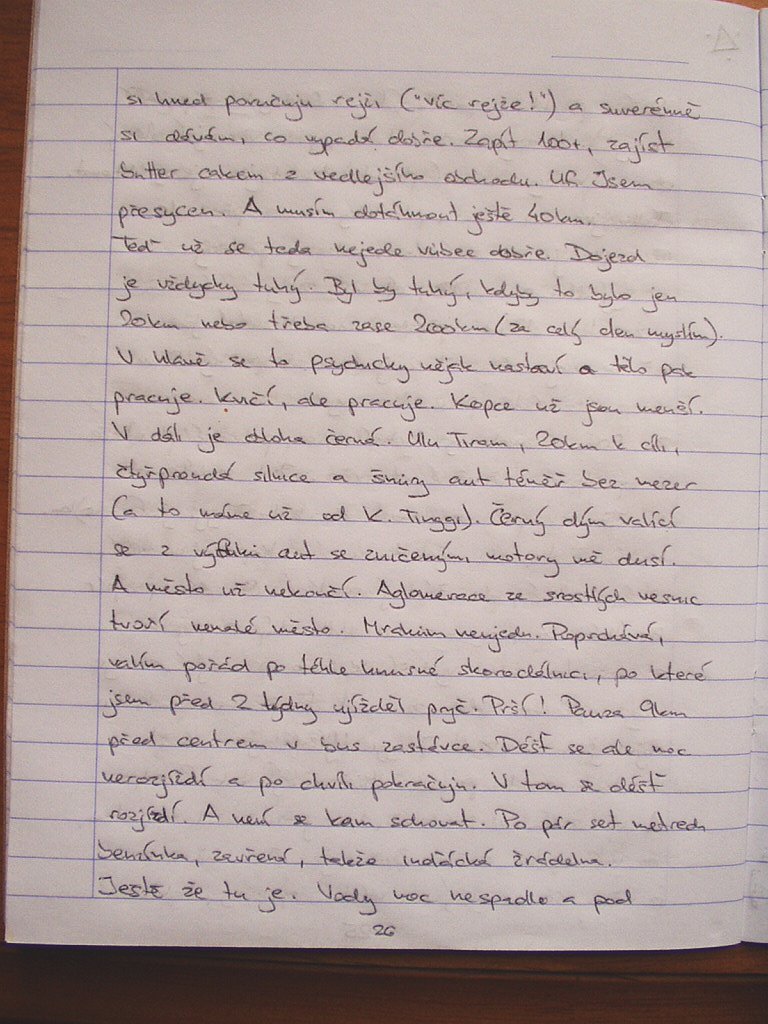 si hned poručuju rejži ("víc rejže!") a suverénně
si dávám, co vypadá dobře. Zapít 100+, zajíst
butter cakem z vedlejšího obchodu. Uf. Jsem
přesycen. A musím dotáhnout ještě 40km.
Teď už se teda nejede vůbec dobře. Dojezd
je vždycky tuhý. Byl by tuhý, kdyby to bylo jen
20km nebo třeba zase 200km (za celý den myslím).
V hlavě se to psychicky nějak nastaví a tělo pak
pracuje. Kučí, ale pracuje. Kopce už jsou menší.
V dáli je obloha černá. Ulu Tiram, 20km k cíli,
čtyřproudá silnice a šňůry aut téměř bez mezer
(a to máme už od K. Tinggi). Černý dým valící
se z výfuků aut se zničenými motory mě dusí.
A město už nekončí. Aglomerace ze srostlých vesnic
tvoří nemalé město. Mrakům neujedu. Poprchává,
valím pořád po téhle hnusné skorodálnici, po které
jsem před 2 týdny ujížděl pryč. Prší! Pauza 9km
před centrem v bus zastávce. Déšť se ale moc
nerozjíždí a po chvíli pokračuju. V tom se déšť
rozjíždí. A není se kam schovat. Po pár set metrech
benzínka, zavřená, takže indická žrádelna.
Ještě že tu je. Vody moc nespadlo a pod
26